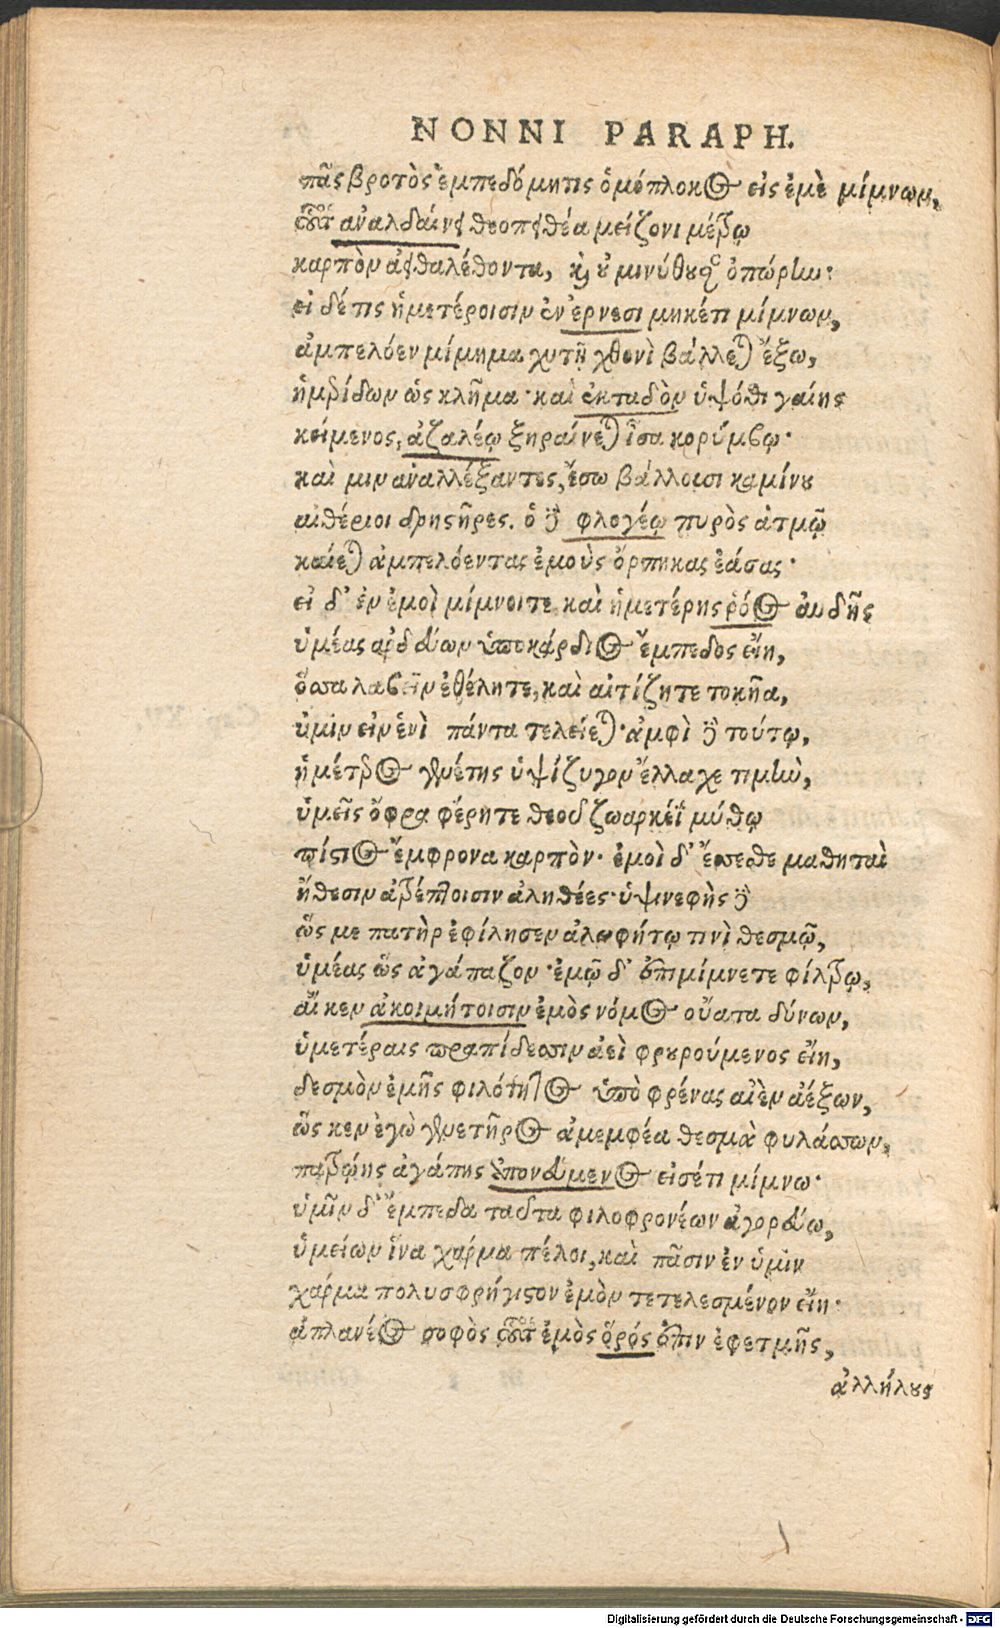 NONNI PARAPH.
πᾶς βροτὸς ἐμπεδόμητις ὁμόπλοκος εἰς ἐμὲ μίμνων,
οὗτος ἀναλδαίνει θεοπειθέα μείζονι μέτρῳ
καρπὸν ἀειθαλέθοντα, καὶ οὐ μινύθουσαν ὀπώρην·
εἰ δέ τις ἡμετέροισιν ἐν ἔρνεσι μηκέτι μίμνων,
ἀμπελόεν μίμημα χυτῇ χθονὶ βάλλεται ἔξω,
ἡμερίδων ὡς κλῆμα· καὶ ἐκταδὸν ὑψόθι γαίης
κείμενος, ἀζαλέῳ ξηραίνεται ἶσα κορύμβῳ·
καί μιν ἀναλλέξαντες, ἔσω βάλλουσι καμίνου
αἰθέριοι δρηστῆρες. ὁ δὲ φλογέῳ πυρὸς ἀτμῷ
καίεται ἀμπελόεντας ἐμοὺς ὄρπηκας ἐάσας·
εἰ δ' ἐν ἐμοὶ μίμνοιτε, καὶ ἡμετέρης ῥόος αὐδῆς
ὑμέας ἀρδεύων ὑποκάρδιος ἔμπεδος εἴη,
ὅσσα λαβεῖν ἐθέλητε, καὶ αἰτίζητε τοκῆα,
ὑμῖν εἰν ἑνὶ πάντα τελείεται· ἀμφὶ δὲ τούτῳ,
ἡμέτερος γενέτης ὑψίζυγον ἔλλαχε τιμὴν,
ὑμεῖς ὄφρα φέρητε θεοῦ ζωαρκέϊ μύθῳ
πίστιος ἔμφρονα καρπὸν· ἐμοὶ δ' ἕπεσθε μαθηταὶ
ἤθεσιν ἀτρέπτοισιν ἀληθέες· ὑψινεφὴς δὲ
ὥς με πατὴρ ἐφίλησεν ἀλωφήτῳ τινὶ θεσμῷ,
ὑμέας ὣς ἀγάπαζον· ἐμῷ δ' ἐπιμίμνετε φίλτρῳ,
αἴ κεν ἀκοιμήτοισιν ἐμὸς νόμος οὔατα δύνων,
ὑμετέραις πραπίδεσσιν ἀεὶ φρουρούμενος εἴη,
δεσμὸν ἐμῆς φιλότητος ὑπὸ φρένας αἰὲν ἀέξων,
ὥς κεν ἐγὼ γενετῆρος ἀμεμφέα θεσμὰ φυλάσσων,
πατρῴης ἀγάπης ἐποχεύμενος εἰσέτι μίμνω·
ὑμῖν δ' ἔμπεδα ταῦτα φιλοφρονέων ἀγορεύω,
ὑμείων ἵνα χάρμα πέλοι, καὶ πᾶσιν ἐν ὑμῖν
χάρμα πολυσφρήγιστον ἐμὸν τετελεσμένον εἴη·
ἀπλανέος σοφὸς οὗτος ἐμὸς ὅρος ἐστὶν ἐφετμῆς,
ἀλλήλους
Digitalisierung gefördert durch die Deutsche Forschungsgemeinschaft - DFG